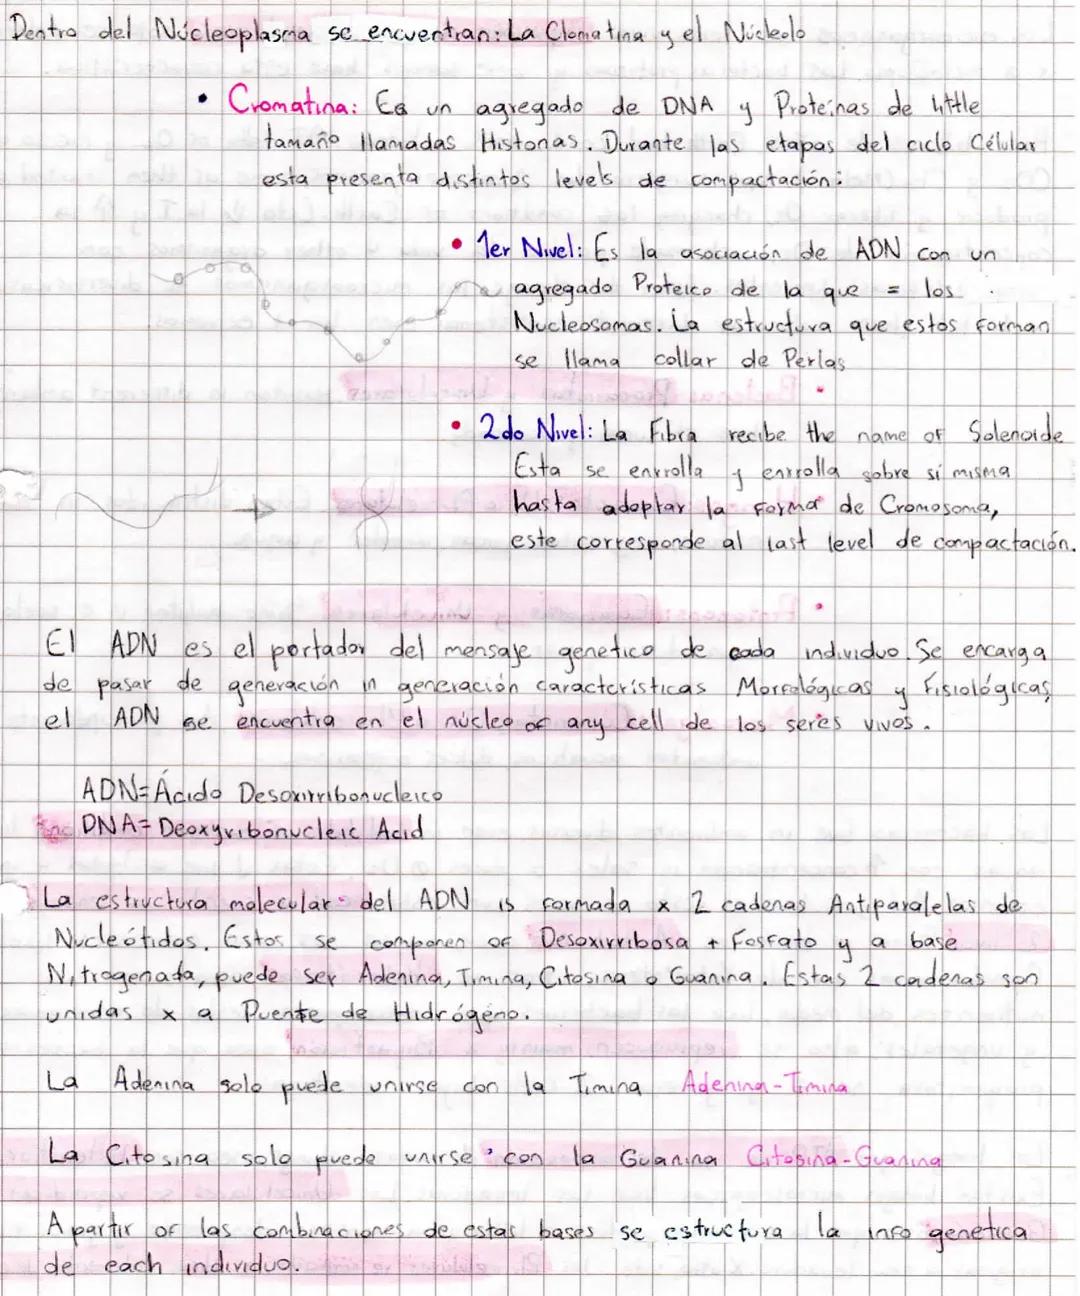 Dentro del Núcleoplasma se encuentran: La Clomatina y el Núcleolo
• Cromatina: Es un agregado de DNA y Proteínas de little
tamaño llamadas Histonas. Durante las etapas del ciclo Célular
esta presenta distintos levels de compactación:
• 1er Nivel: Es la asociación de ADN con un
agregado Proteico de la que = los
Nucleosomas. La estructura que estos forman
se llama collar de Perlas
• 2do Nivel: La Fibra recibe the name of Solenoide
Esta se enrrolla y enrrolla sobre sí misma
hasta adoptar la forma de Cromosoma,
este corresponde al last level de compactación.
El ADN es el portador del mensaje genetico de cada individuo. Se encarga
de pasar de generación in generación características Morfológicas y Fisiológicas,
el ADN se encuentra en el núcleo of any cell de los seres vivos.
ADN=Ácido Desoxirribonucleico
DNA= Deoxyribonucleic Acid
La estructura molecular del ADN is formada x 2 cadenas Antiparalelas de
Nucleótidos. Estos se componen of Desoxirribosa + Fosfato y a base
Nitrogenada, puede ser Adenina, Timina, Citosina o Guanina. Estas 2 cadenas son
unidas x a Puente de Hidrógéno.
La Adenina solo puede unirse con la Timina Adenina-Timina
La Citosina solo puede unirse con la Guanina Citosina-Guanina
A partir of las combinaciones de estas bases se estructura la info genetica
de each individuo.